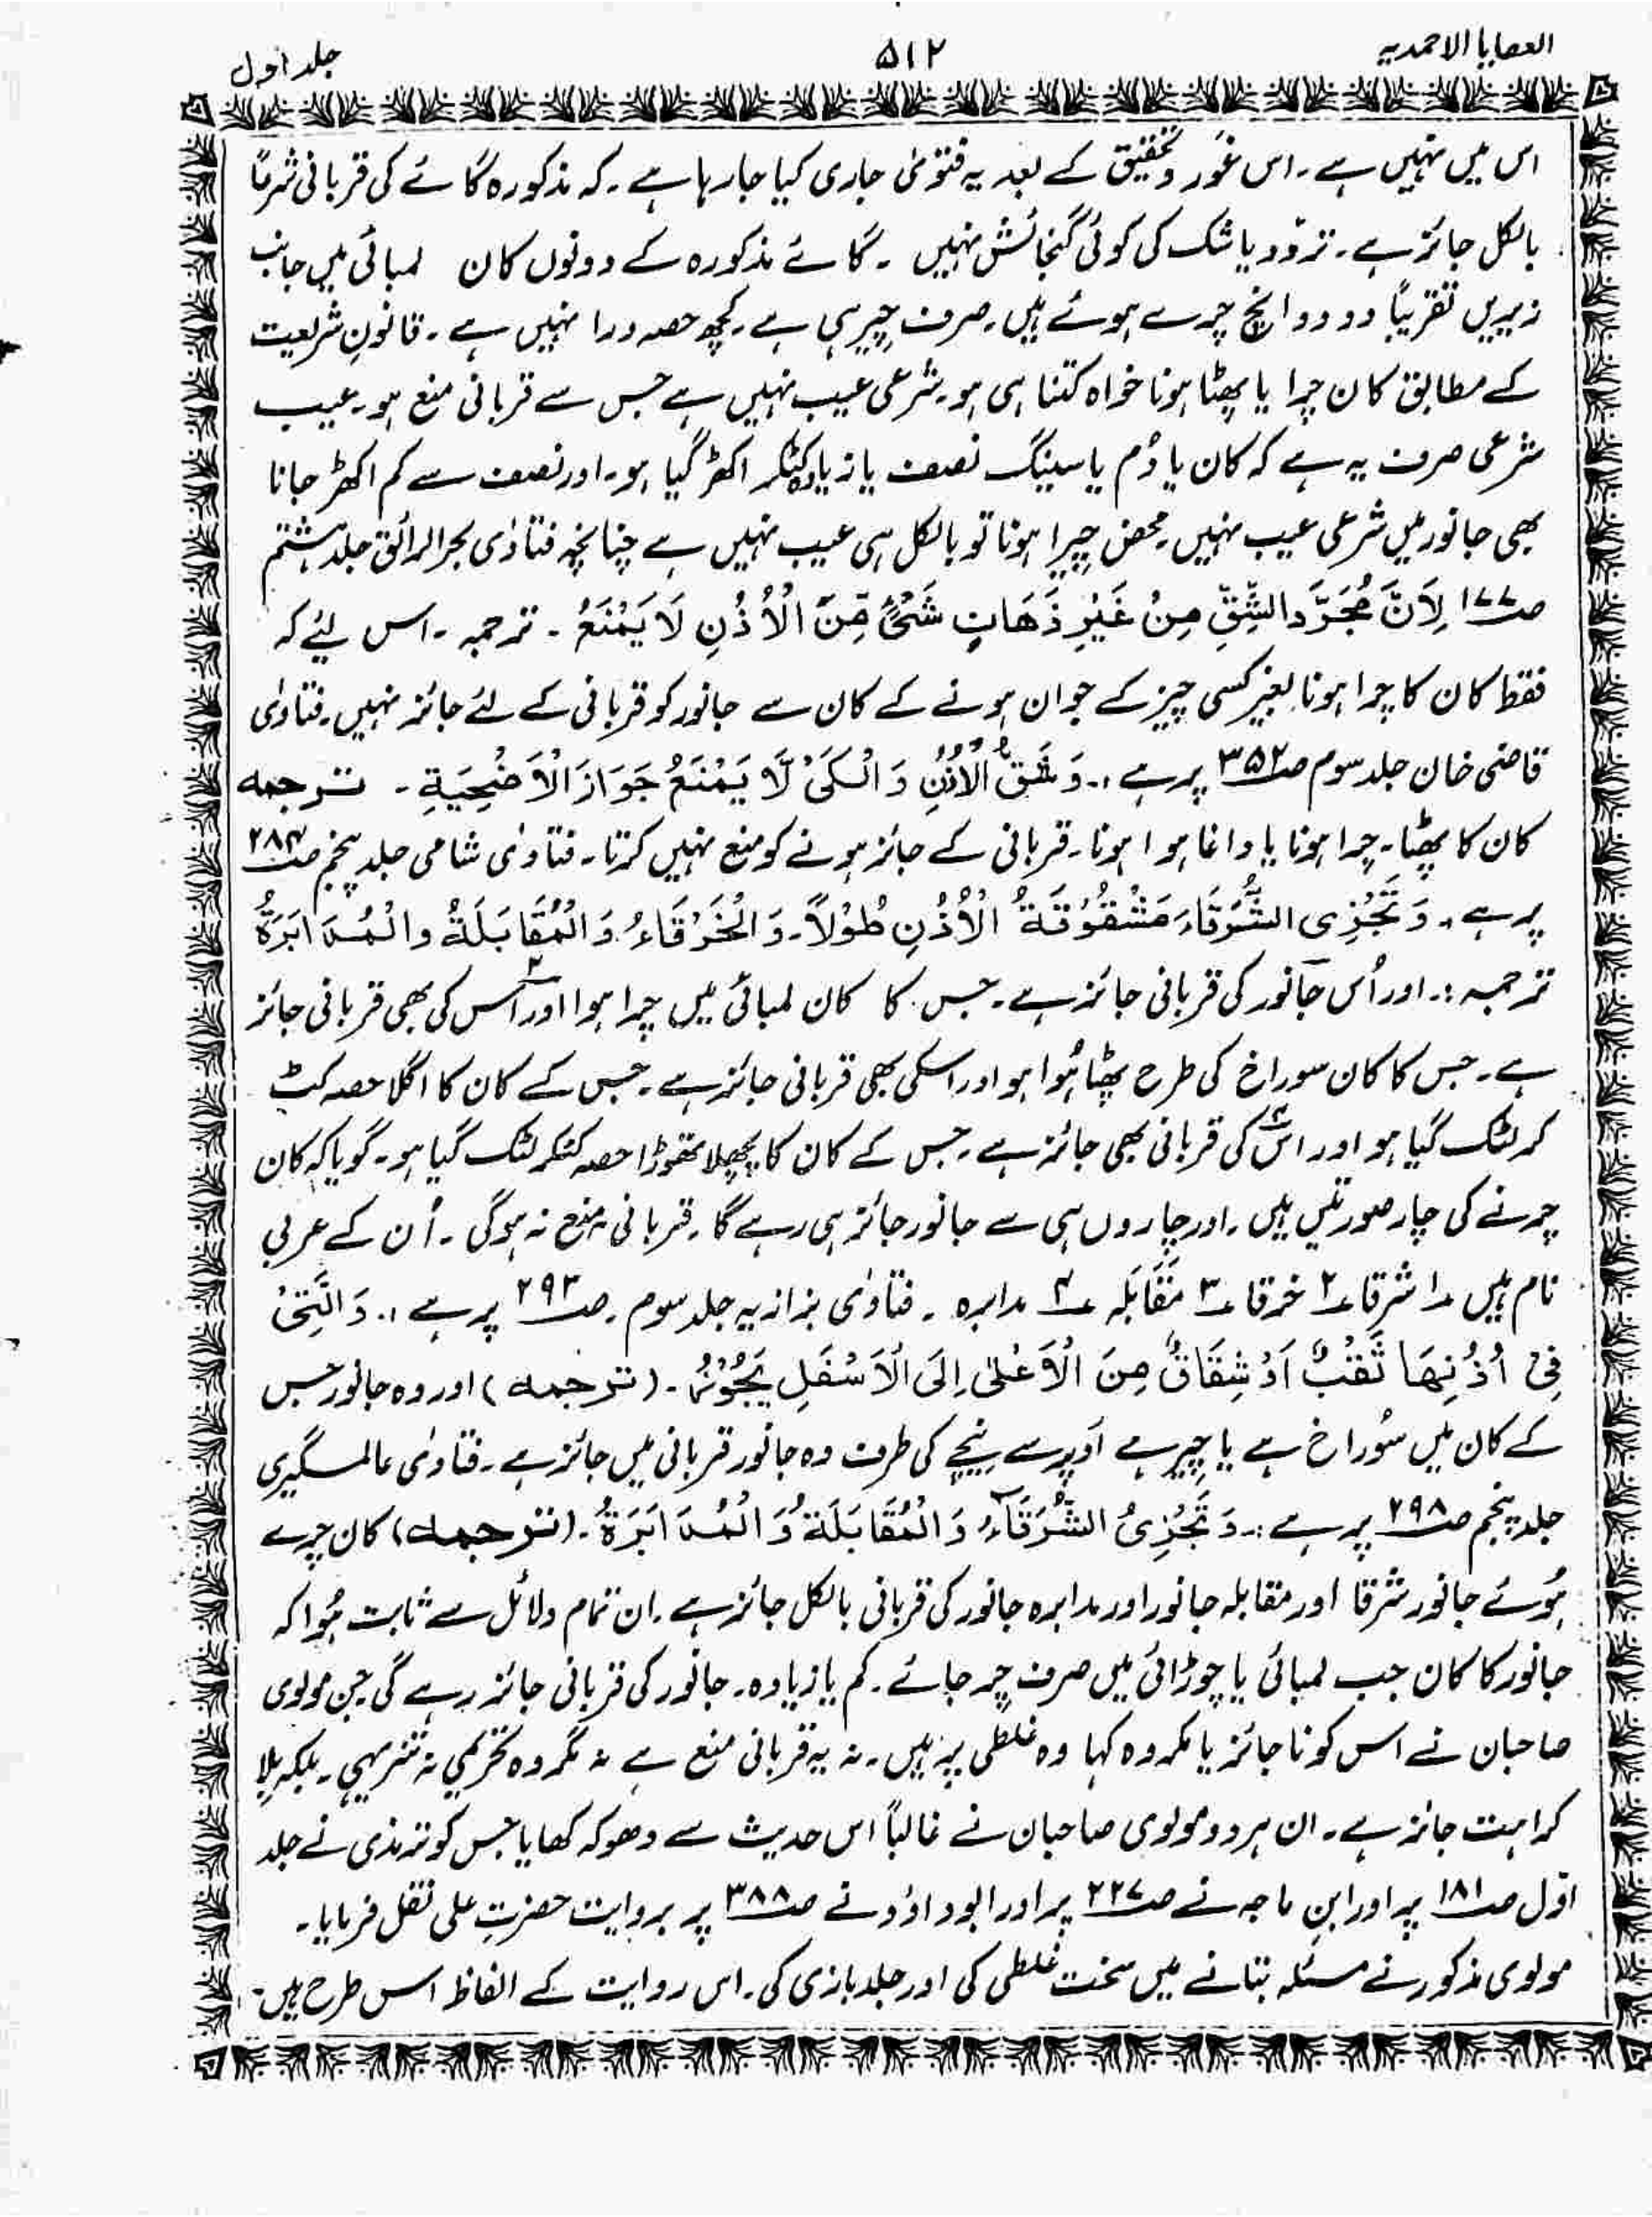 العطایا الاحمدیہ
۵۱۲
جلد اول
اس میں نہیں ہے۔ اس غور و تحقیق کے بعد یہ فتویٰ جاری کیا جا رہا ہے۔ کہ مذکورہ گائے کی قربانی شرعاً
بالکل جائز ہے۔ تردّد یا شک کی کوئی گنجائش نہیں ۔ گائے مذکورہ کے دونوں کان لمبائی میں جانب
زیریں تقریباً دو دو انچ چرے ہوئے ہیں۔ صرف چِیر ہی ہے۔ کچھ حصہ ورا نہیں ہے۔ قانونِ شریعت
کے مطابق کان چرا یا پھٹا ہونا خواہ کتنا ہی ہو۔ شرعی عیب نہیں ہے جس سے قربانی منع ہو۔ عیب
شرعی صرف یہ ہے کہ کان یا دُم یا سینگ نصف یا زیادہ کٹکر اکھڑ گیا ہو۔ اور نصف سے کم اکھڑ جانا
بھی جانور میں شرعی عیب نہیں۔ محض چِیرا ہونا تو بالکل ہی عیب نہیں ہے چنانچہ فتاوٰی بحر الرائق جلد ہشتم
صـ۱۷۷ لِاَنَّ مُجَرَّدَ الشِّقِّ مِنْ غَیْرِ ذَهَابٍ شَیْءٍ مِّنَ الْاُذُنِ لَا یَمْنَعُ ۔ ترجمہ ۔ اس لیئے کہ
فقط کان کا چرا ہونا بغیر کسی چیز کے جوان ہونے کے کان سے جانور کو قربانی کے لئے جائز نہیں۔ فتاوٰی
قاضی خان جلد سوم صـ۳۵۲ پر ہے :۔ وَ شَقُّ الْاُذُنِ وَ الْکَیْ لَا یَمْنَعُ جَوَازَ الْاَضْحِیَةِ ۔ ترجمہ
کان کا پھٹا۔ چرا ہونا یا داغا ہوا ہونا۔ قربانی کے جائز ہونے کو منع نہیں کرتا۔ فتاوٰی شامی جلد پنجم صـ۲۸۴
پر ہے۔ وَ تَجْزِی الشَّرَقَاءَ مَشْقُوْقَةُ الْاُذُنِ طُوْلاً۔ وَ الْخَرْقَاءُ وَ الْمُقَابَلَةُ والْمُدَابَرَةُ
ترجمہ :۔ اور اُس جانور کی قربانی جائز ہے۔ جس کا کان لمبائی میں چرا ہوا اور اُس۲ کی بھی قربانی جائز
ہے۔ جس کا کان سوراخ کی طرح پھٹا ہُوا ہو اور اسکی بھی قربانی جائز ہے۔ جس کے کان کا اگلا حصہ کٹ
کر لٹک گیا ہو اور اس۴ کی قربانی بھی جائز ہے۔ جس کے کان کا پچھلا تھوڑا حصہ کٹکر لٹک گیا ہو۔ گویا کہ کان
چرنے کی چار صورتیں ہیں۔ اور چاروں ہی سے جانور جائز ہی رہے گا۔ قربانی منع نہ ہوگی ۔ اُن کے عربی
نام ہیں ۱ شرقا ۲ خرقا ۳ مقَابَلہ ۴ مدابرہ ۔ فتاوٰی بزازیہ جلد سوم۔ صـ۲۹۳ پر ہے :۔ وَ الَّتِیْ
فِیْ اُذُنِهَا ثَقْبٌ اَوْ شِقَاقٌ مِنَ الْاَعْلٰی اِلَی الْاَسْفَلِ یَجُوْزُ۔ (ترجمہ) اور وہ جانور جس
کے کان میں سُوراخ ہے یا چِیر ہے اُوپر سے نیچے کی طرف وہ جانور قربانی میں جائز ہے۔ فتاوٰی عالمگیری
جلد پنجم صـ۲۹۸ پر ہے :۔ وَ تَجْزِیُ الشَّرَقَآءُ وَ الْمُقَابَلَةُ وَ الْمُدَابَرَةُ۔ (ترجمہ) کان چرے
ہُوئے جانور شرقا اور مقابلہ جانور اور مدابرہ جانور کی قربانی بالکل جائز ہے۔ ان تمام دلائل سے ثابت ہُوا کہ
جانور کا کان جب لمبائی یا چوڑائی میں صرف چِر جائے۔ کم یا زیادہ۔ جانور کی قربانی جائز رہے گی جن مولوی
صاحبان نے اس کو ناجائز یا مکروہ کہا وہ غلطی پہ ہیں۔ نہ یہ قربانی منع ہے نہ مکروہ تحریمی نہ تنزیہی۔ بلکہ بلا
کراہت جائز ہے۔ ان ہر دو مولوی صاحبان نے غالباً اس حدیث سے دھوکہ کھایا جس کو ترمذی نے جلد
اوّل صـ۱۸۱ پر اور ابنِ ماجہ نے صـ۲۲۷ پر اور ابوداؤد نے صـ۳۸۸ پر بروایت حضرتِ علی نقل فرمایا۔
مولوی مذکور نے مسئلہ بتانے میں سخت غلطی کی اور جلد بازی کی۔ اس روایت کے الفاظ اس طرح ہیں۔